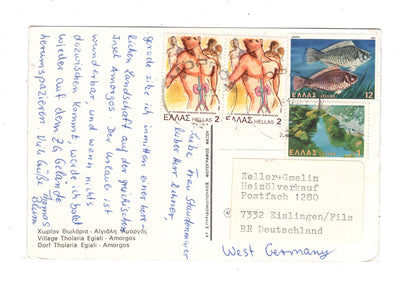 Liebe Frau Staudenmaier
lieber Herr Lehner,
gerade sitze ich inmitten einer herr-
lichen Landschaft auf der griechischen
Insel Amorgos. Der Urlaub ist
wunderbar und wenn nichts
dazwischen kommt werde ich bald
wieder auf dem ZG Gelände
herumspazieren. Viele Grüße Thomas
Blum
Χωρίον Θωλάρια - Αιγιάλη Αμοργός
Village Tholaria Egiali - Amorgos
Dorf Tholaria Egiali - Amorgos
ΕΛΛΑΣ HELLAS 2
ΕΛΛΑΣ HELLAS 2
ΕΛΛΑΣ 12
ΕΛΛΑΣ
Zeller+Gmelin
Heizölverkauf
Postfach 1280
7332 Eislingen/Fils
BR Deutschland
West Germany